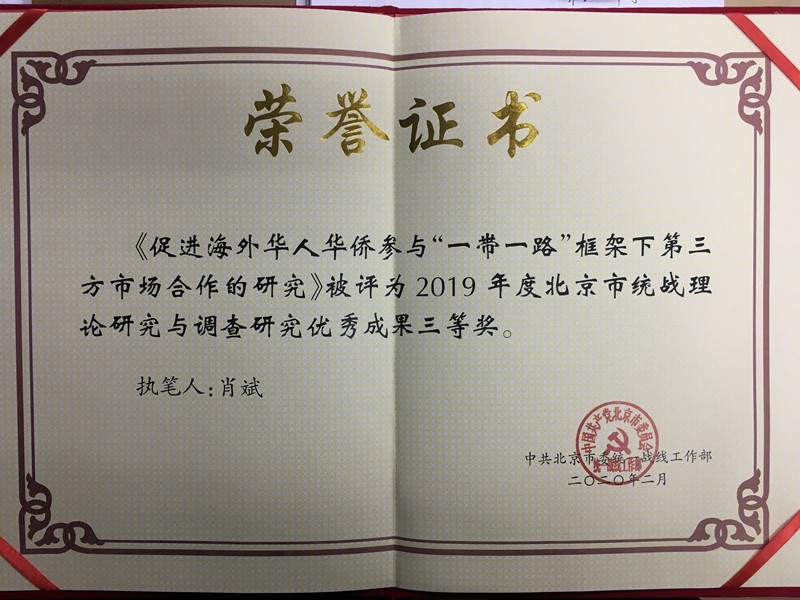 荣誉证书
《促进海外华人华侨参与“一带一路”框架下第三
方市场合作的研究》被评为 2019 年度北京市统战理
论研究与调查研究优秀成果三等奖。
执笔人：肖斌
中国共产党北京市委员会
统一战线工作部
中共北京市委统一战线工作部
二〇二〇年二月